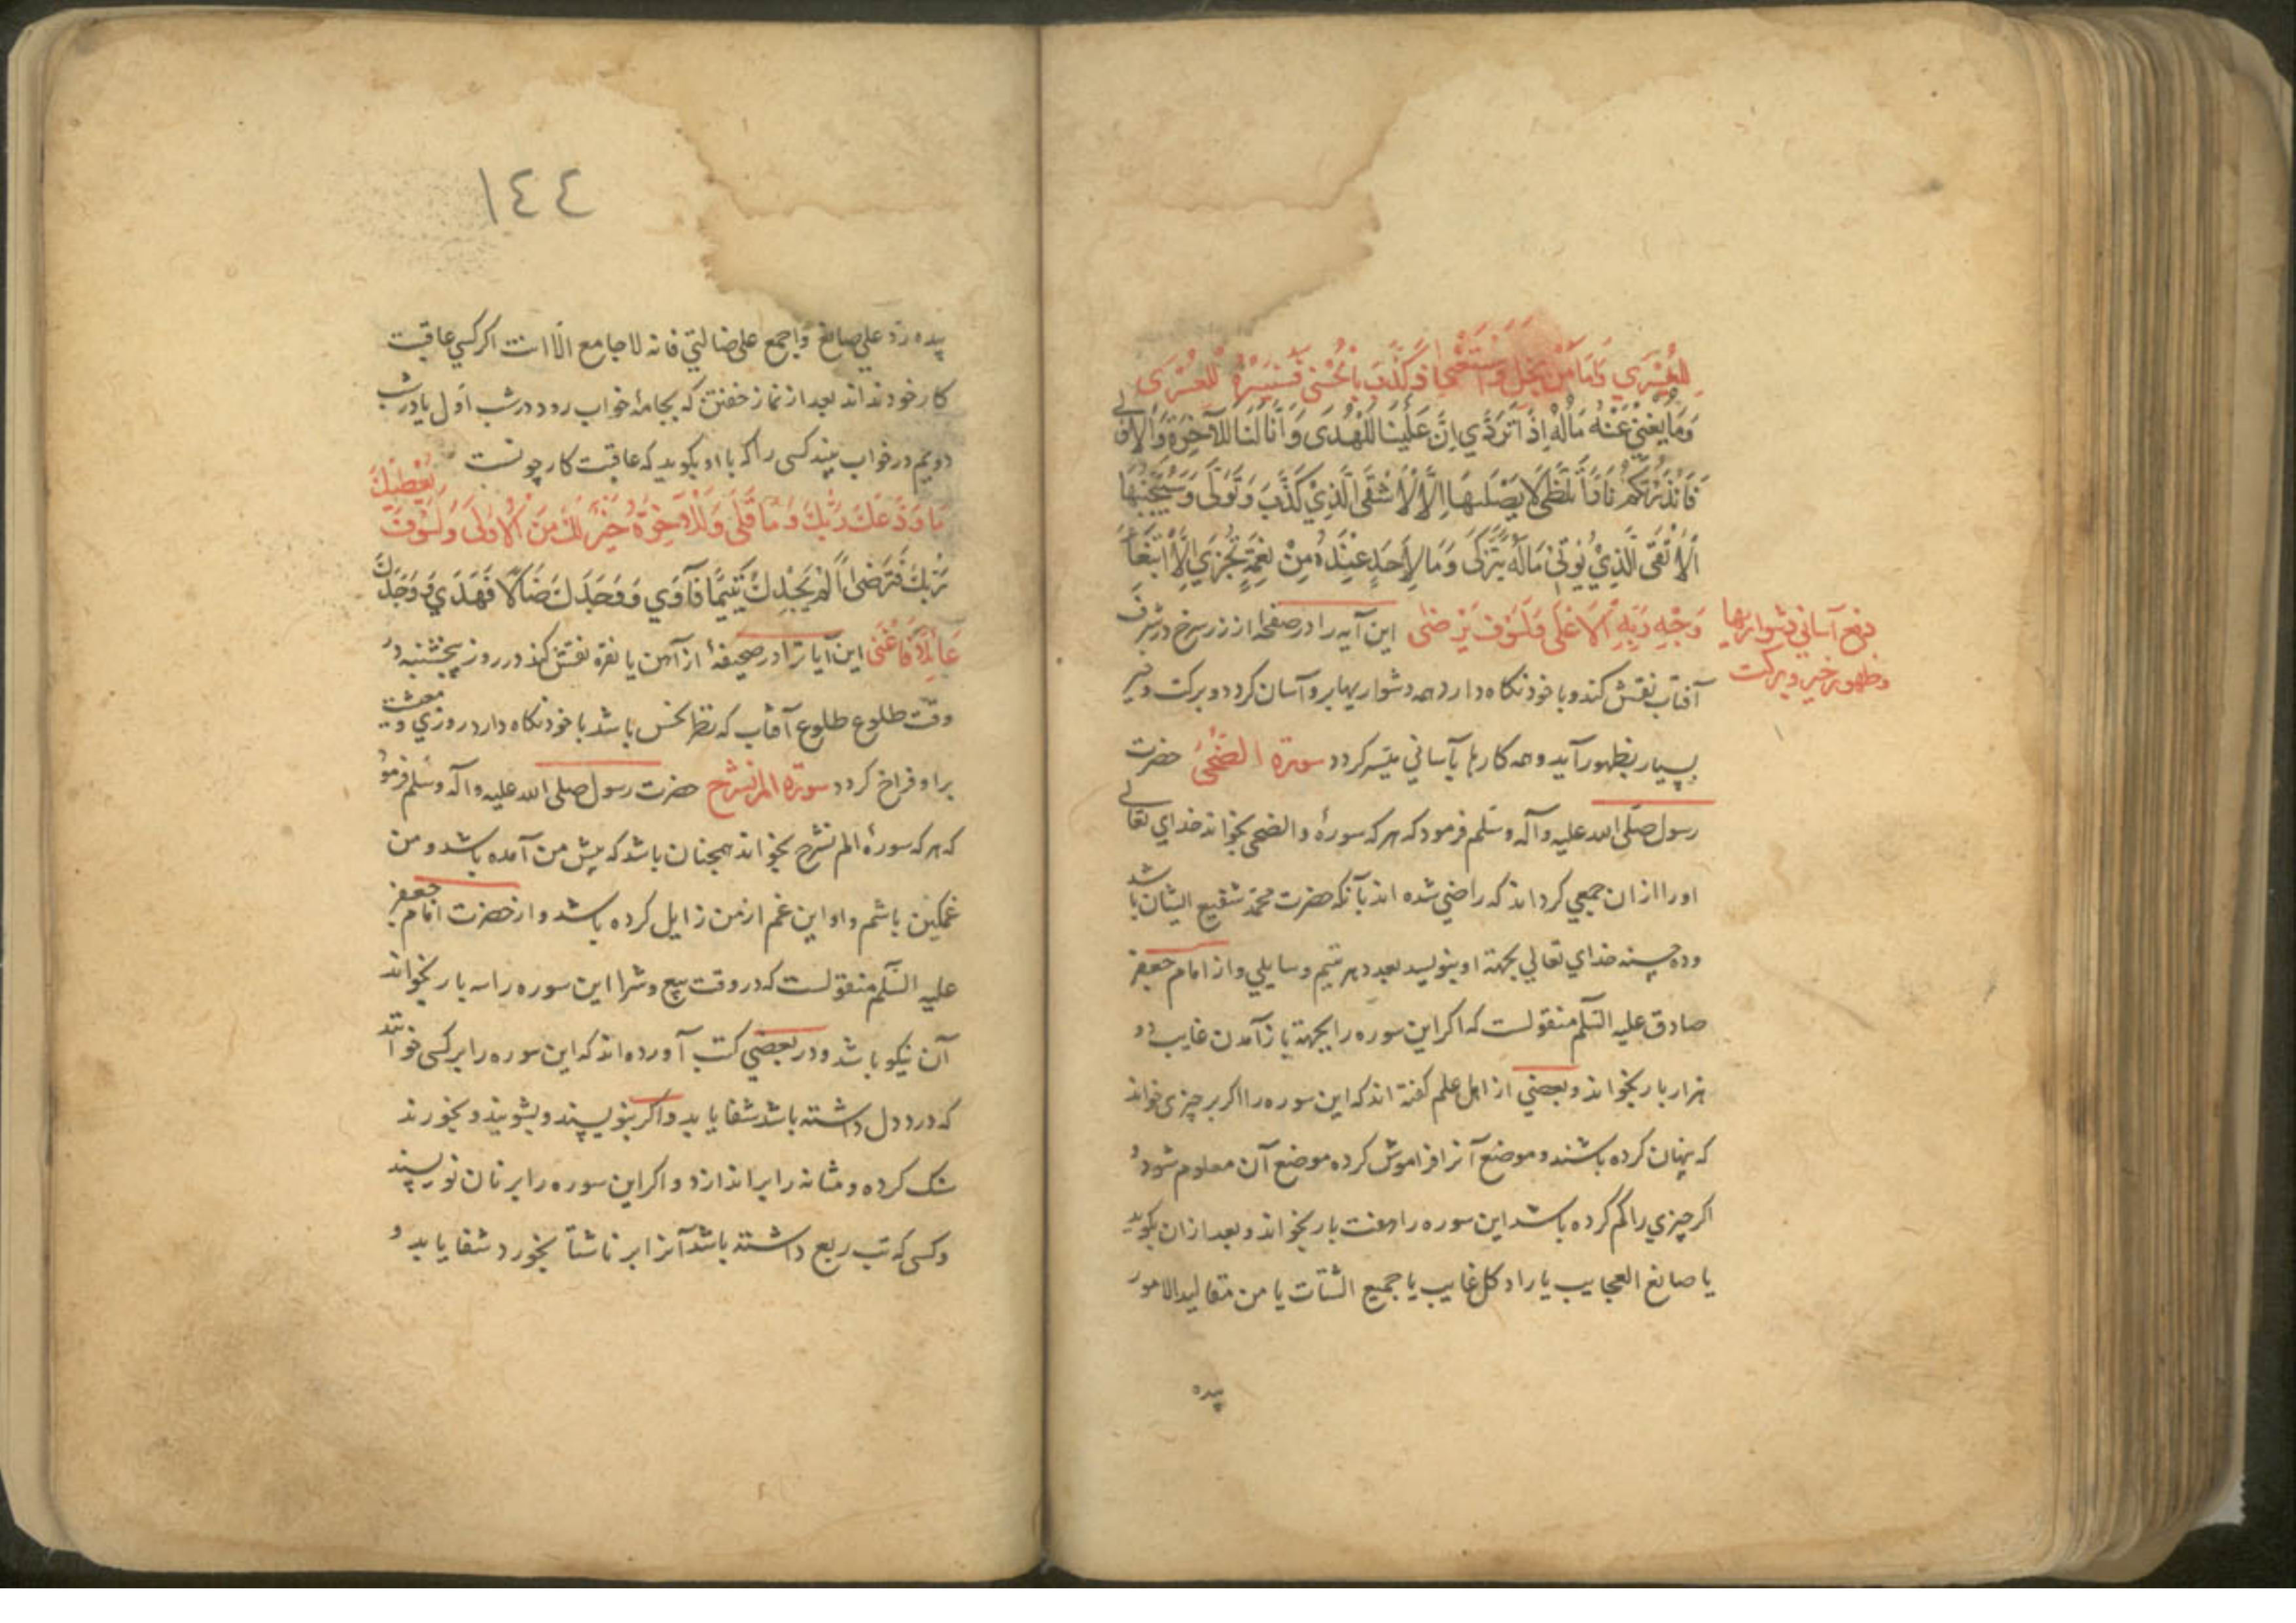 لِلْيُسْرَي وَاَمَّا مَنْ بَخِلَ وَاسْتَغْنٰي وَكَذَّبَ بِالْحُسْنٰي فَسَنُيَسِّرُهُ لِلْعُسْرَى
وَمَا يُغْنِيْ عَنْهُ مَالُهُ اِذَا تَرَدّٰي اِنَّ عَلَيْنَا لَلْهُدَى وَاَنَّا لَنَا لَلآخِرَةَ وَالاُولٰى
فَاَنْذَرْتُكُمْ نَارًا تَلَظّٰى لَا يَصْلٰىهَا اِلَّا الْاَشْقَى الَّذِيْ كَذَّبَ وَتَوَلّٰى وَسَيُجَنَّبُهَا
الْاَتْقَى الَّذِيْ يُؤْتِيْ مَالَهُ يَتَزَكّٰى وَمَا لِاَحَدٍ عِنْدَهُ مِنْ نِعْمَةٍ تُجْزٰي اِلَّا ابْتِغَاءَ
وَجْهِ رَبِّهِ الْاَعْلٰى وَلَسَوْفَ يَرْضٰى این آیه را در صفحهٔ از زر سرخ در شرف
آفتاب نقش کند و با خود نکاه دارد همه دشواریها بر و آسان کردد و برکت و خیر
بسیار بظهور آید و همه کارها بآساني میسر کردد سورة الضحى حضرت
رسول صلى الله علیه وآله وسلم فرمود که هر که سورهٔ والضحی بخواند خداي تعالی
اورا از ان جمعي کرداند که راضي شده اند بآنکه حضرت محمد شفیع ایشان باشد
و ده حسنه خداي تعالي بجهة او بنویسد بعدد هر یتیم و سایلي و از امام جعفر
صادق علیه السلم منقولست که اکر این سوره را بجهة باز آمدن غایب دو
هزار بار بخواند و بعضي از اهل علم کفته اند که این سوره را اکر بر چیزی خواند
که پنهان کرده باشند و موضع آنرا فراموش کرده موضع آن معلوم شود و
اکر چیزي را کم کرده باشد این سوره را هفت بار بخواند و بعد ازان بکوید
یا صانع العجایب یا راد کل غایب یا جمیع الشتات یا من مقالید الامور
پیده
دفع آساني دشواریها
و ظهور خیر و برکت
١٤٤
پیده رد علي صایع واجمع علی ضالتي فانه لا جامع الا انت اکر کسي عاقبت
کار خود نداند بعد از نماز خفتن که بجامهٔ خواب رود در شب اول یا در شب
دویم در خواب بیند کسی را که با او بکوید که عاقبت کار چونست
مَا وَدَّعَكَ رَبُّكَ وَمَا قَلٰى وَلَلْاٰخِرَةُ خَيْرٌ لَكَ مِنَ الْاُولٰى وَلَسَوْفَ يُعْطِيْكَ
رَبُّكَ فَتَرْضٰى اَلَمْ يَجِدْكَ يَتِيْمًا فَآوٰي وَوَجَدَكَ ضَالًّا فَهَدٰي وَوَجَدَكَ
عَائِلًا فَاَغْنٰى این آیات را در صحیفهٔ از آهن یا نقره نقش کند در روز پنجشنبه در
وقت طلوع طلوع آفتاب که نظر نحس باشد با خود نکاه دارد روزي و معیشت
بر او فراخ کردد سورة الم نشرح حضرت رسول صلی الله علیه وآله وسلم فرمود
که هر که سورهٔ الم نشرح بخواند همچنان باشد که پیش من آمده باشد و من
غمکین باشم و او این غم از من زایل کرده باشد و از حضرت امام جعفر
علیه السلم منقولست که در وقت بیع و شرا این سوره را سه بار بخواند
آن نیکو باشد و در بعضي کتب آورده اند که این سوره را بر کسی خوانند
که درد دل داشته باشد شفا یابد و اکر بنویسند و بشویند و بخورند
سنک کرده و مثانه را بر اندازد و اکر این سوره را بر نان نویسند
و کسی که تب ربع داشته باشد آنرا بر ناشتا بخورد شفا یابد و